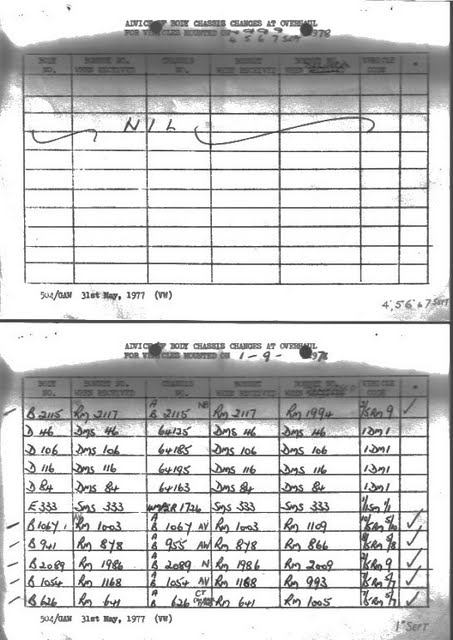 ADVICE OF BODY CHASSIS CHANGES AT OVERHAUL
FOR VEHICLES MOUNTED ON 4 5 6 7 SEPT 1978
BODY NO. BONNET NO. WHEN RECEIVED CHASSIS NO. BONNET WHEN RECEIVED BONNET NO. WHEN VEHICLE CODE *
NIL
502/GAW 31st May, 1977 (VW)
4, 5 6 & 7 SEPT
ADVICE OF BODY CHASSIS CHANGES AT OVERHAUL
FOR VEHICLES MOUNTED ON 1-9-1978
BODY NO. BONNET NO. WHEN RECEIVED CHASSIS NO. BONNET WHEN RECEIVED BONNET NO. WHEN VEHICLE CODE *
B 2115 RM 2117 A B 2115 NB RM 2117 RM 1994 2/5RM 9 ✓
D 46 DMS 46 64125 DMS 46 DMS 46 1DM1
D 106 DMS 106 64185 DMS 106 DMS 106 1DM1
D 116 DMS 116 64195 DMS 116 DMS 116 1DM1
D 84 DMS 84 64163 DMS 84 DMS 84 1DM1
E 333 SMS 333 1726 SMS 333 SMS 333 1/1SM 1/1
B 1067 RM 1003 A B 1067 AV RM 1003 RM 1109 ✓
B 941 RM 878 A B 955 AW RM 878 RM 866 8/5RM 5/8 ✓
B 2089 RM 1986 A B 2089 N RM 1986 RM 2009 2/5RM 9 ✓
B 1054 RM 1168 A B 1054 AV RM 1168 RM 993 7/5RM 5/7 ✓
B 626 RM 641 A B 626 RM 641 RM 1005 7/5RM 5/7 ✓
502/GAW 31st May, 1977 (VW)
1st SEPT